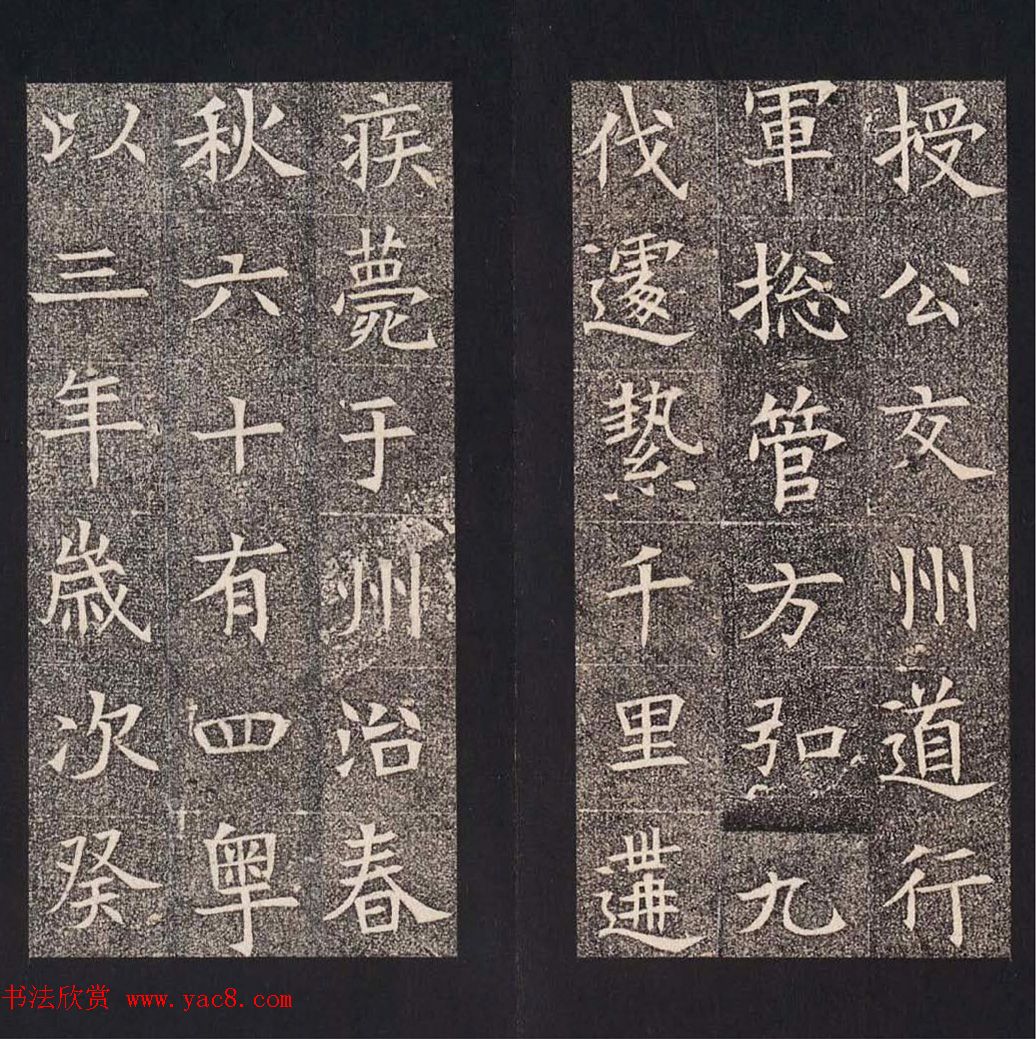 授公交州道行
軍揔管方弘九
伐遽縶千里遘
疾薨于州治春
秋六十有四粵
以三年歲次癸
书法欣赏 www.yac8.com